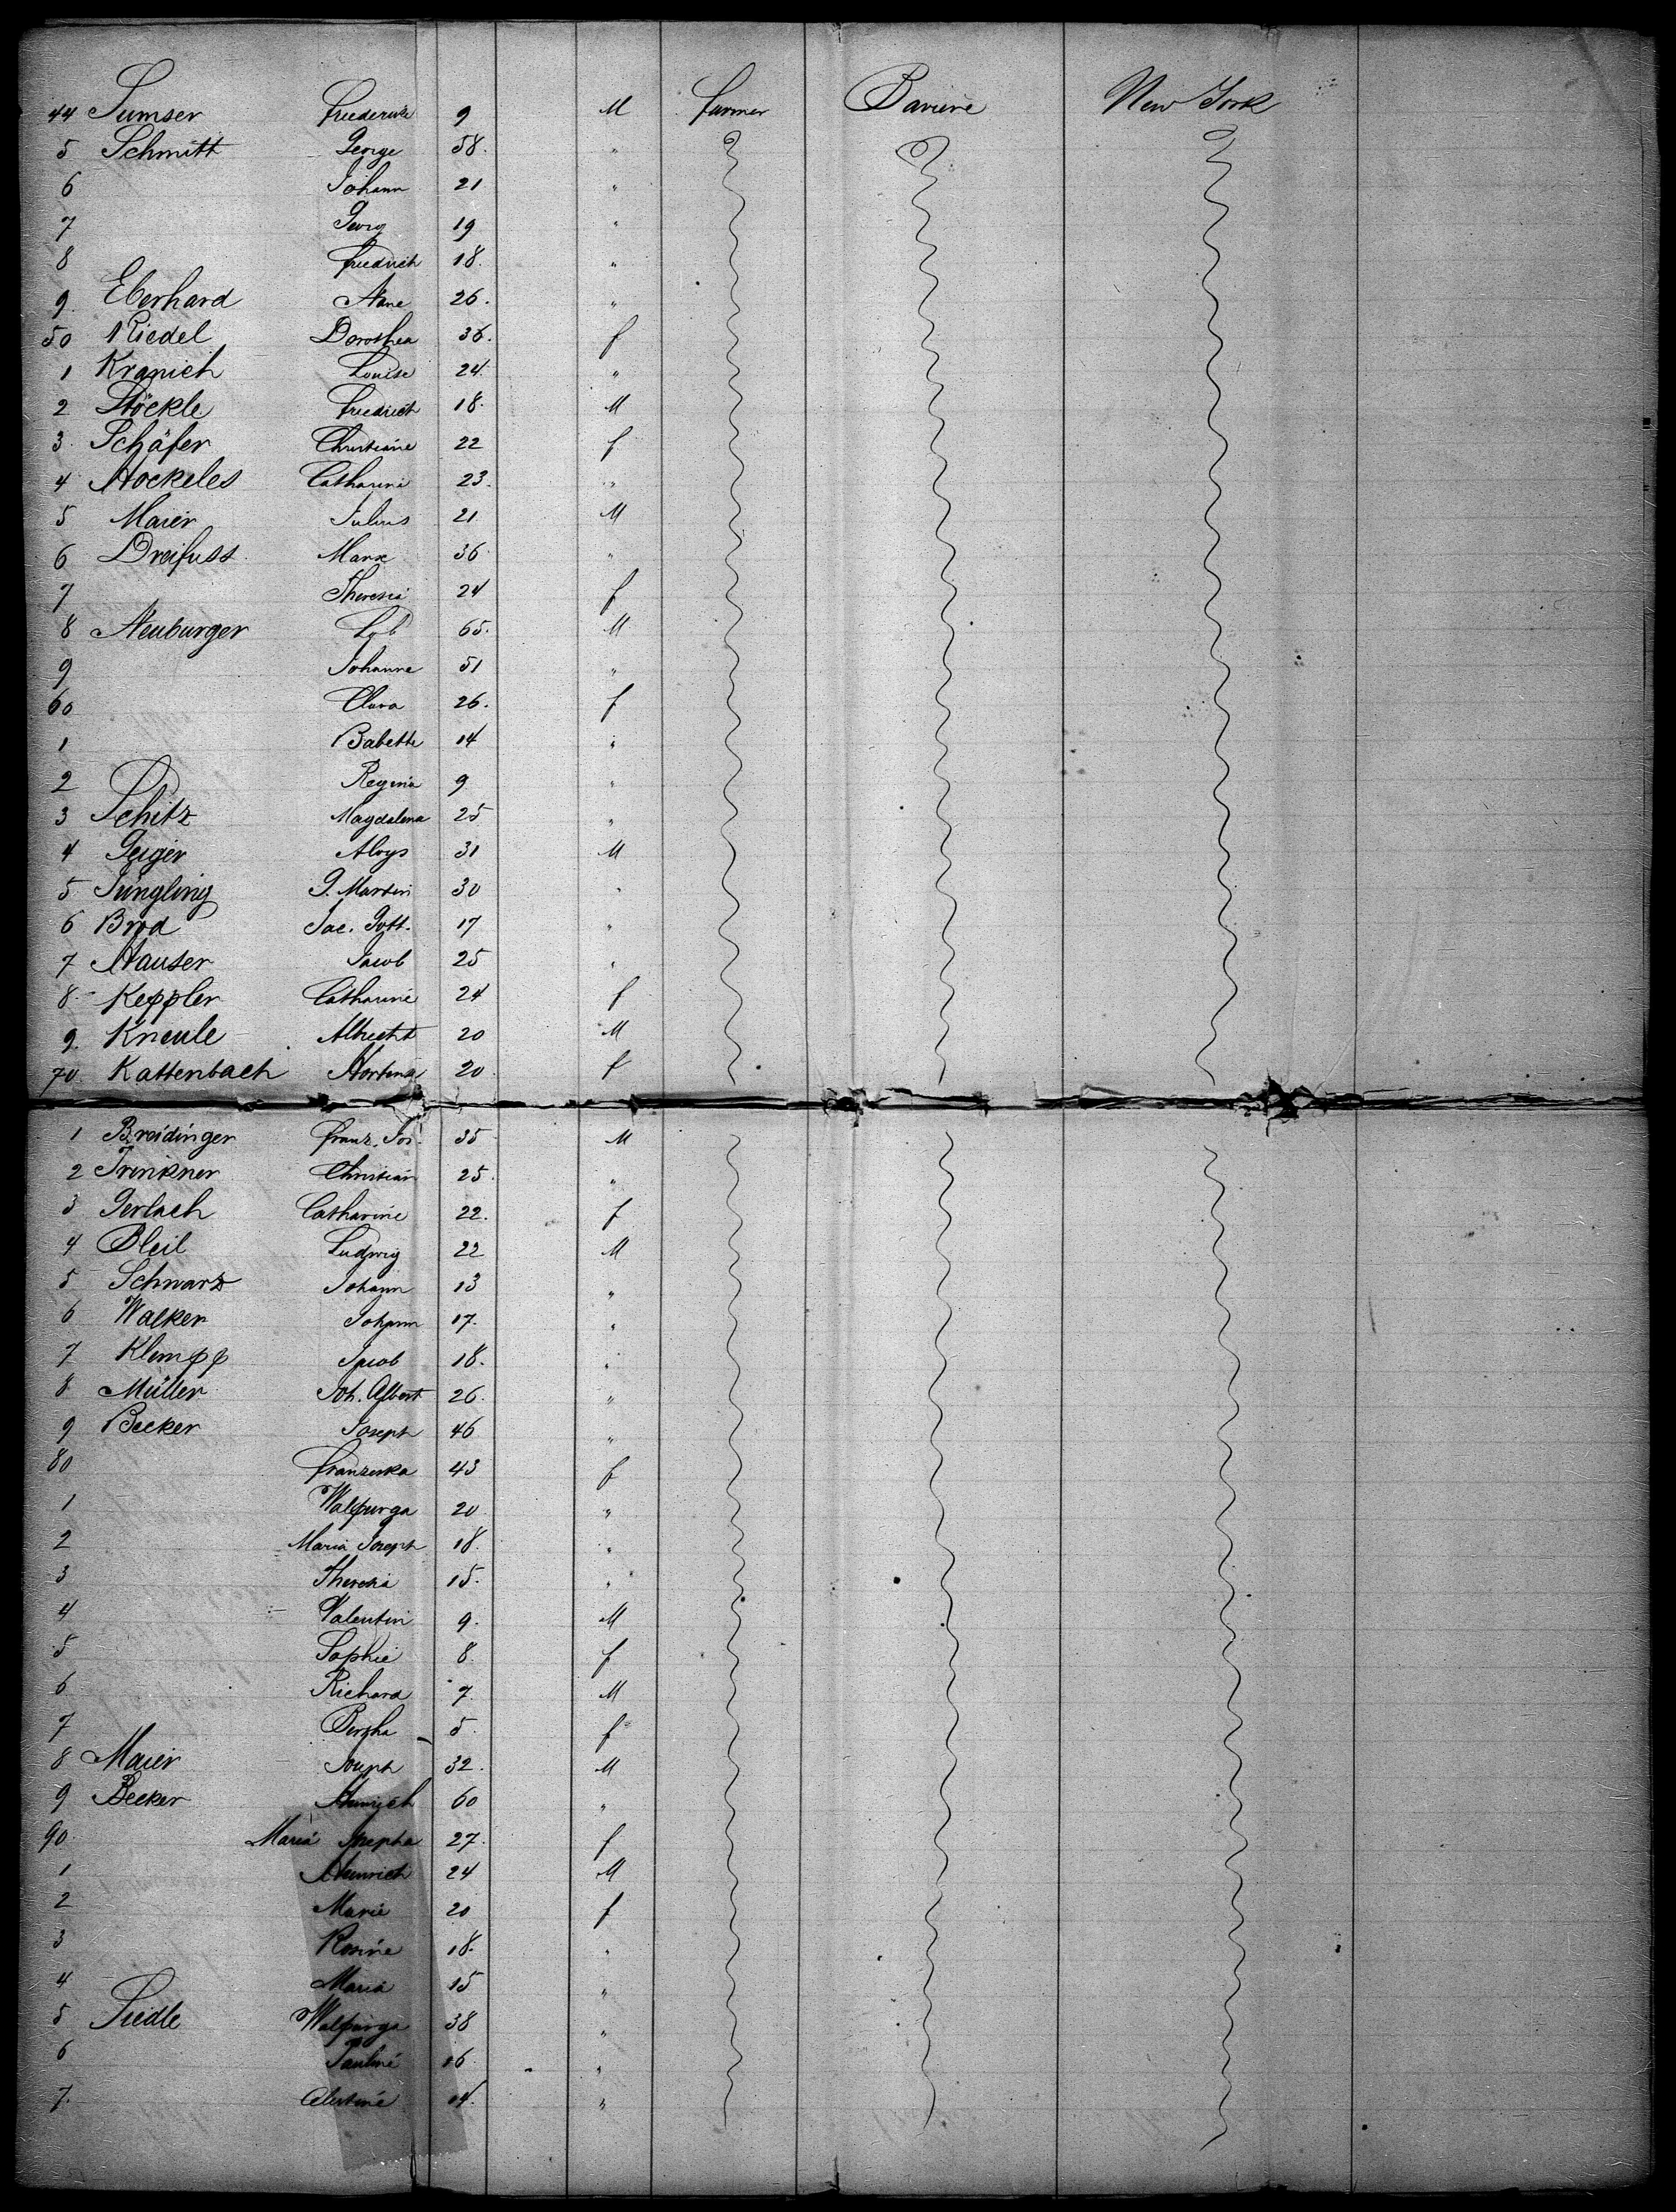 44 Sumser Friedericke 9 M farmer Baviere New York
5 Schmitt George 58. "
6 Johann 21 "
7 Georg 19 "
8 Friedrich 18. "
9. Eberhard Nane 26. "
50 Riedel Dorothea 36. f
1 Kranich Louise 24 "
2 Stöckle Friedrich 18. M
3. Schäfer Christiane 22 f
4 Hockeles Catharine 23. "
5 Maier Julius 21 M
6 Dreifuss Marx 36 "
7 Theresia 24 f
8 Neuburger Löb 65. M
9 Johanne 51 "
60 Clara 26. f
1 Babette 14 "
2 Regina 9 "
3 Schitz Magdalena 25 "
4 Geiger Aloys 31 M
5 Jüngling G. Martin 30 "
6 Brod Jac. Gott. 17 "
7 Hauser Jacob 25 "
8. Keppler Catharine 24 f
9. Kneule Albrecht 20 M
70 Kattenbach 20 f
1 Breidinger Franz. Jos. 35 M
2 Trinkner Christian 25. "
3 Gerlach Catharine 22. f
4 Bleil Ludwig 22 M
5 Schwarz Johann 13 "
6 Walker Johann 17. "
7 Klempp Jacob 18. "
8 Müller Joh. Albert 26. "
9 Becker Joseph 46 "
80 Franziska 43 f
1 Walpurga 20 "
2 Maria Joseph 18. "
3 Theresia 15. "
4 Valentin 9. M
5 Sophie 8 f
6 Richard 7 M
7 Bertha 5. f
8 Maier Joseph 32. M
9 Becker Heinrich 60 "
90. Maria Josepha 27. f
1 Heinrich 24 M
2 Marie 20 f
3 Rosine 18. "
4 Maria 15 "
5 Siedle Walpurga 38 "
6 Pauline 16 "
7. Celestine 14. "